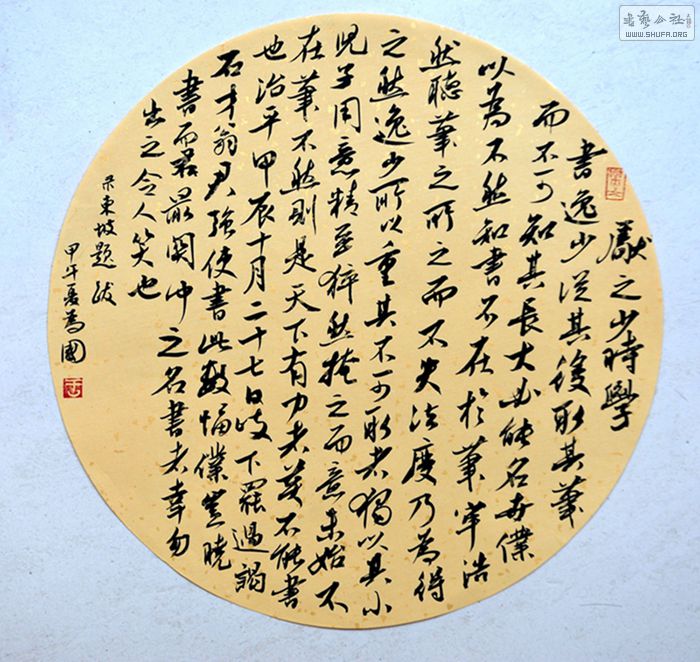 獻之少時學
書逸少從其後取其筆
而不可知其長大必能名世僕
以為不然知書不在於筆牢浩
然聽筆之所之而不失法度乃為得
之然逸少所以重其不可取者獨以其小
兒子用意精至猝然掩之而意未始不
在筆不然則是天下有力者莫不能書
也治平甲辰十月二十七日岐下罷過謁
石才翁君強使書此數幅僕豈曉
書而君最關中之名書者幸勿
出之令人笑也
录東坡題跋
甲午夏為國
書藝公社
WWW.SHUFA.ORG